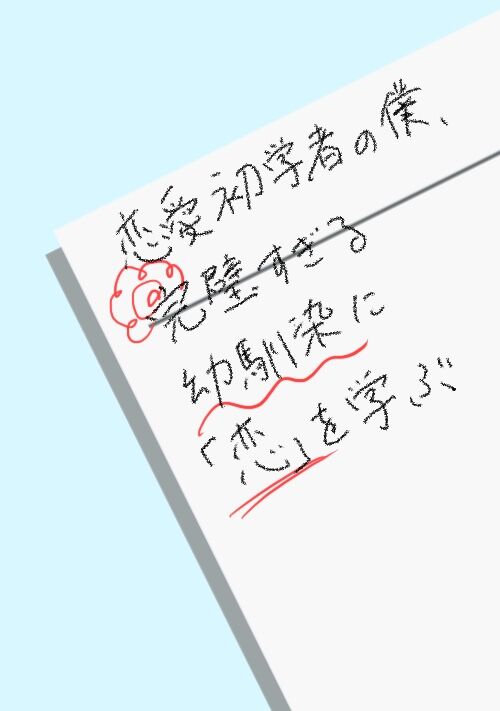 恋愛初学者の僕、
完璧すぎる
幼馴染に
「恋」を学ぶ